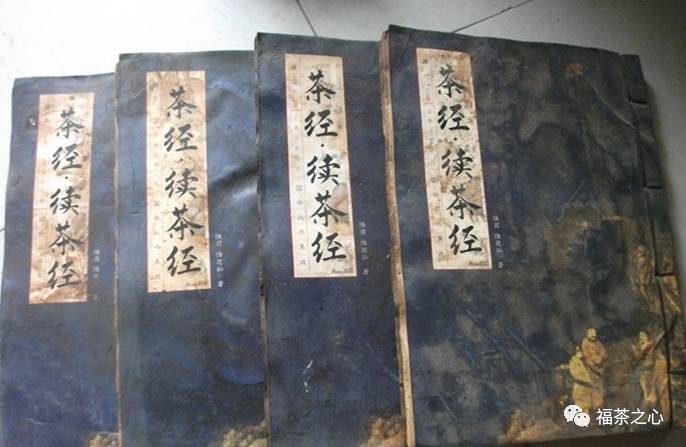 茶经·续茶经
陆羽 陆廷灿 著
茶经·续茶经
陆羽 陆廷灿 著
茶经·续茶经
陆羽 陆廷灿 著
茶经·续茶经
陆羽 陆廷灿 著
福茶之心